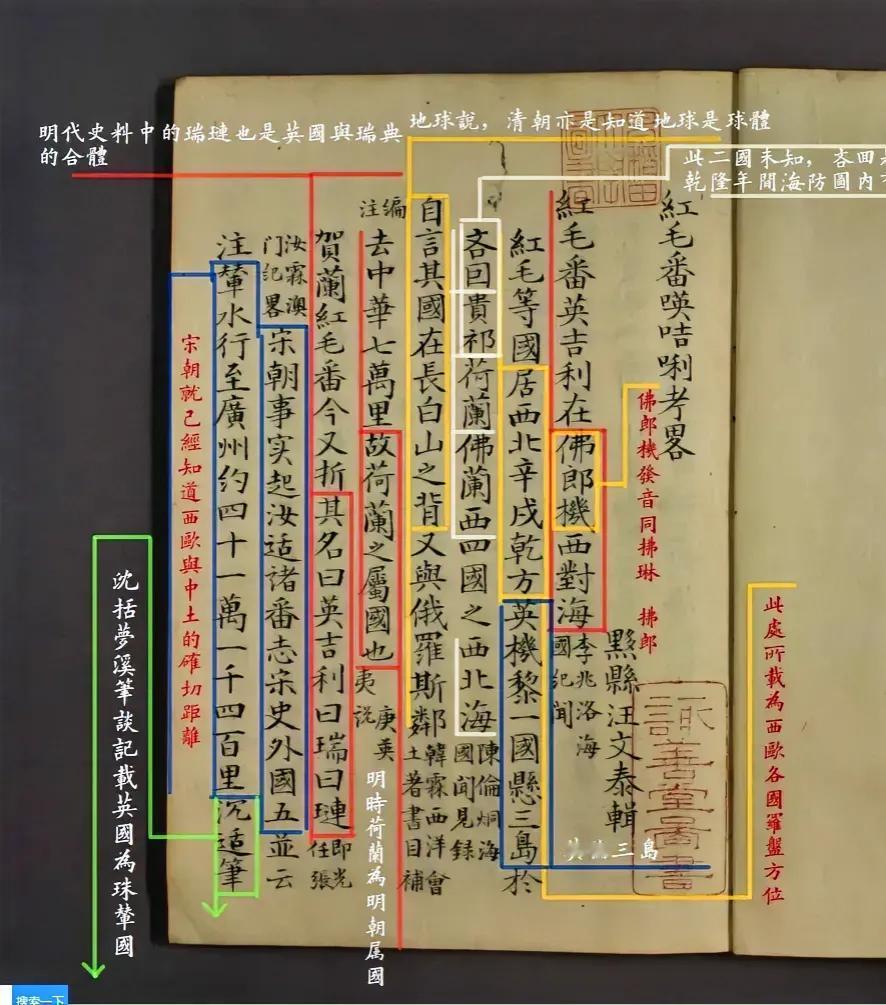 地球說，清朝亦是知道地球是球體
此二國未知，
乾隆年間海防圖內
明代史料中的瑞璉也是英國與瑞典
的合體
紅毛番𠸄咭唎考畧
黟縣汪文泰輯
紅毛番英吉利在佛郎機西對海李兆洛海國紀聞
紅毛等國居西北辛戌乾方英機黎一國懸三島於
吝囙貴祁荷蘭佛蘭西四國之西北海陳倫炯海國聞見録
自言其國在長白山之背又與俄羅斯鄰韓霖西洋會土著書目補
編注去中華七萬里故荷蘭之屬國也夷説
賀蘭紅毛番今又折其名曰英吉利曰瑞曰璉即光任張
汝霖澳门記畧宋朝事实起汝适諸番志宋史外國五並云
注輦水行至廣州約四十一萬一千四百里沉适筆
此處所載為西歐各國羅盤方位
佛郎機發音同拂琳 拂郎
英為三島
明時荷蘭為明朝属國
宋朝就已經知道西歐與中土的確切距離
沈括夢溪筆談記載英國為珠輦國
搜索一下